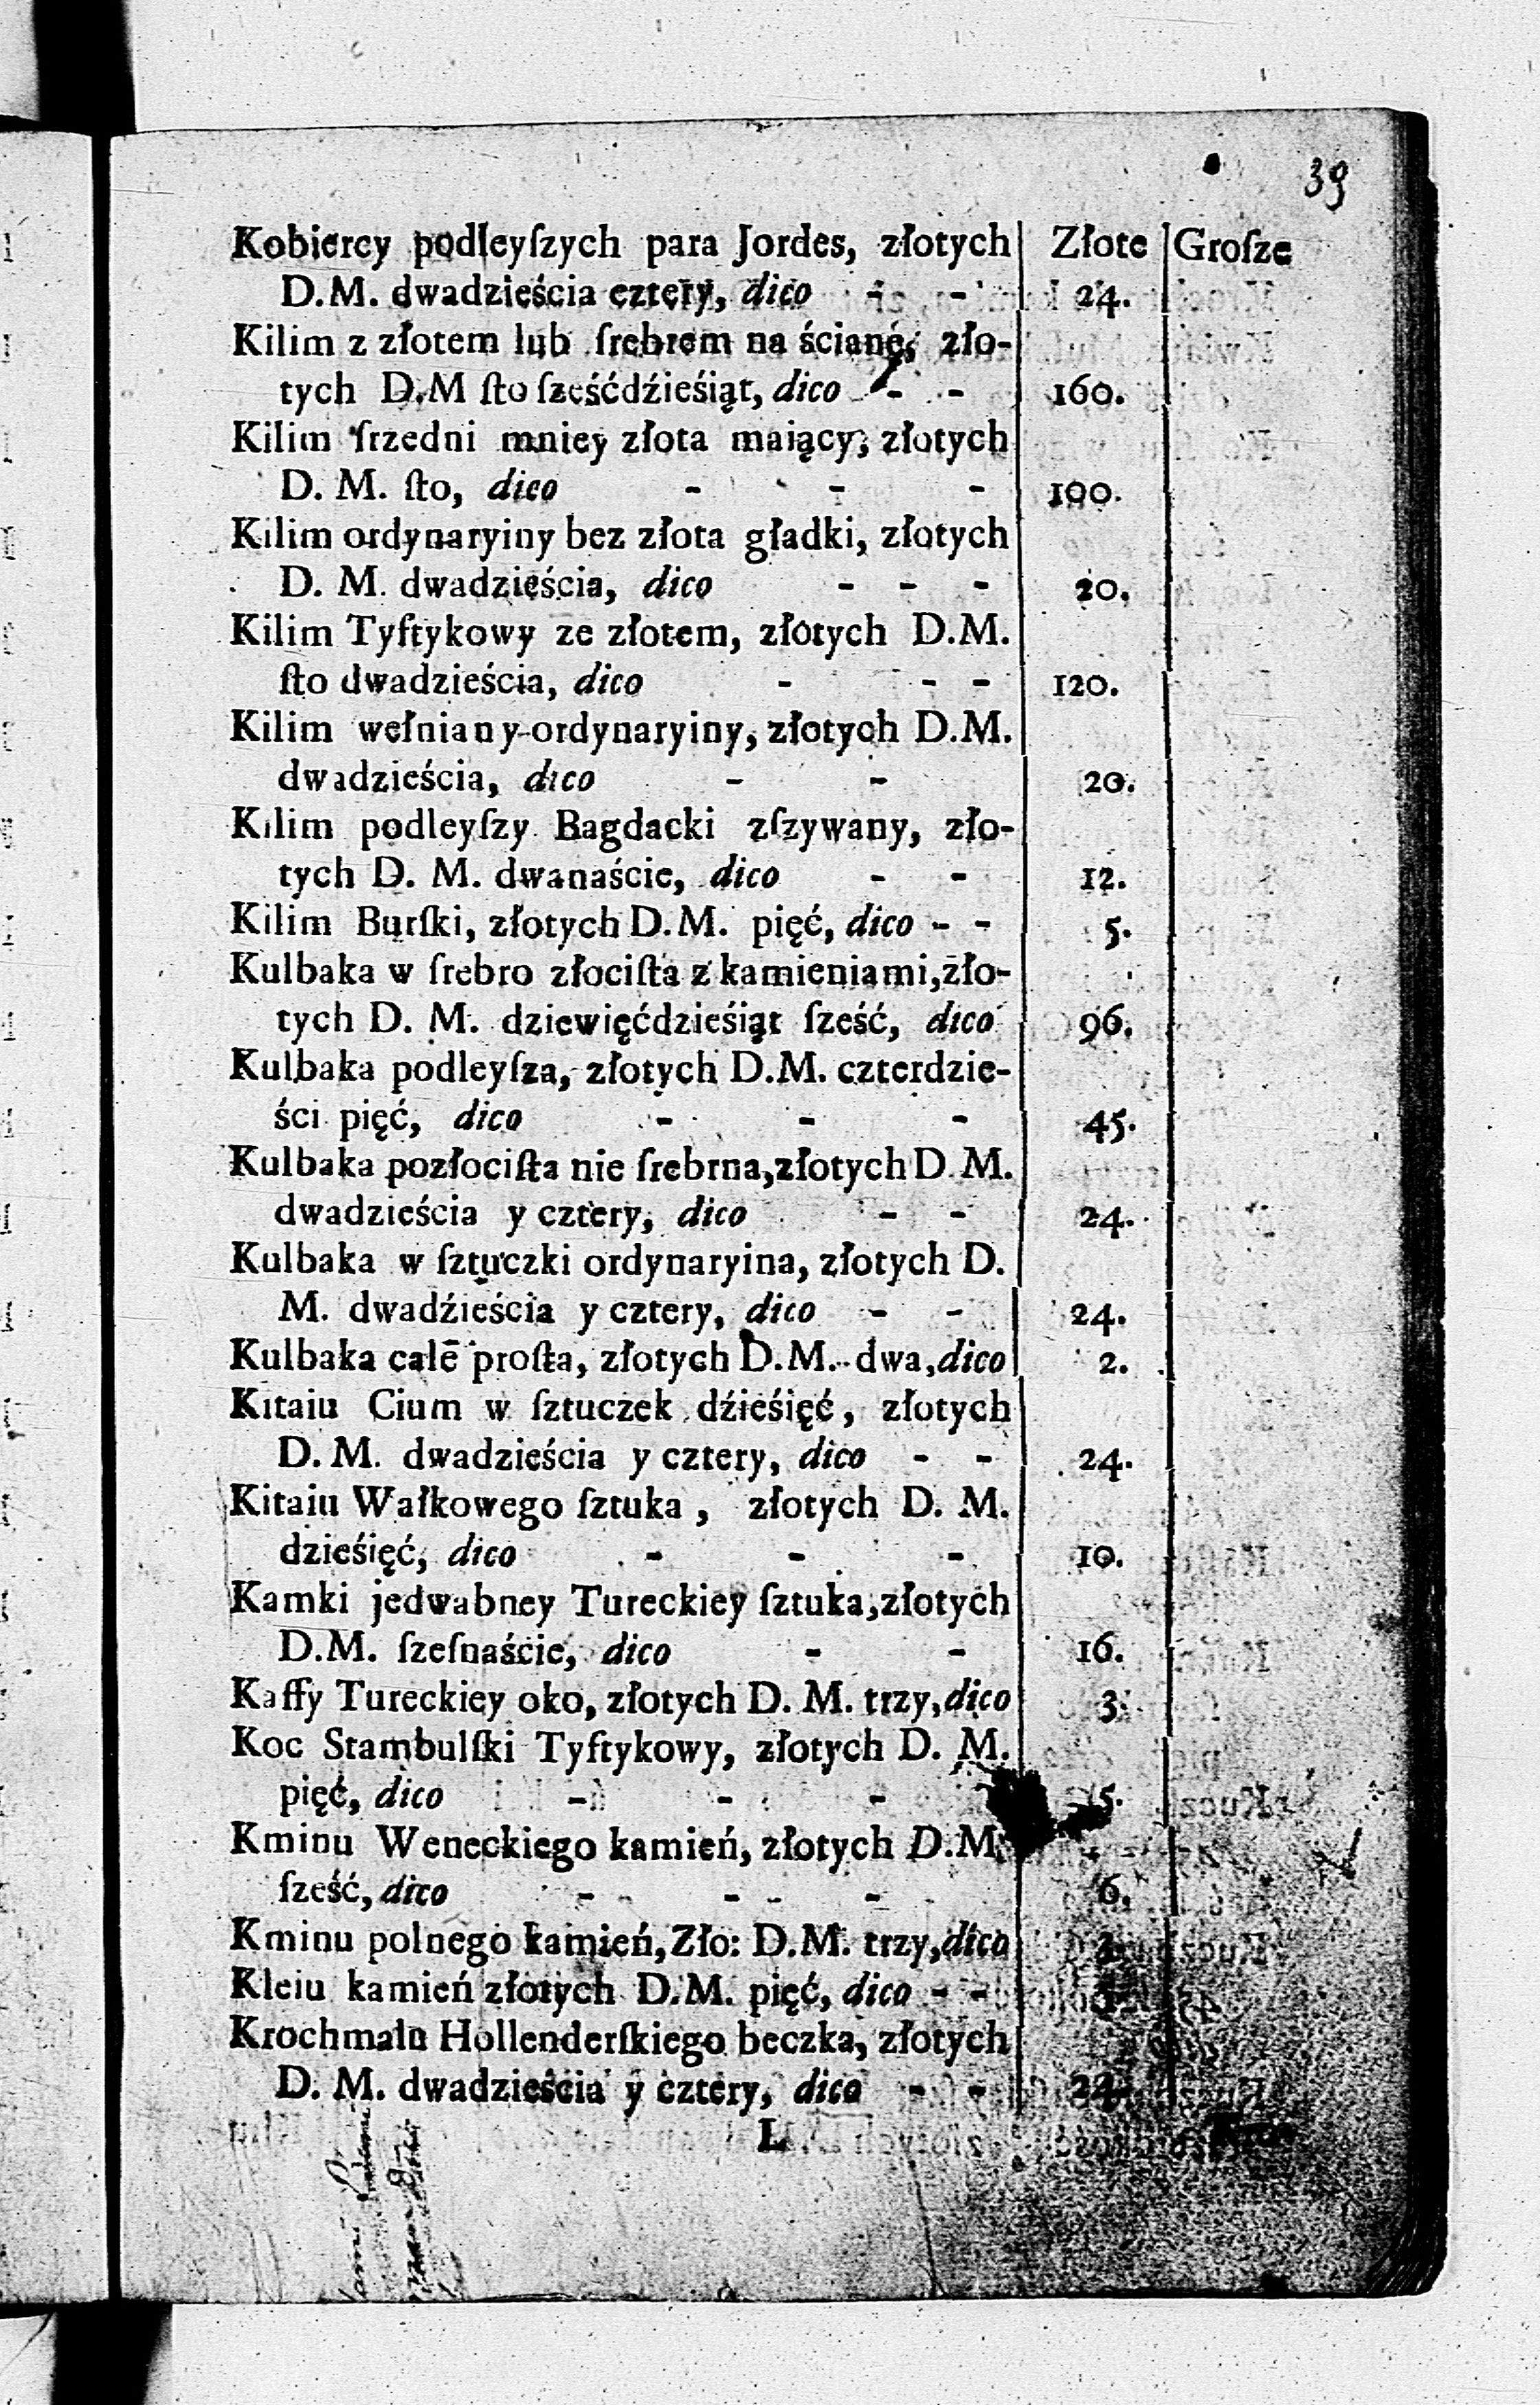 39
Kobiercy podleyſzych para Jordes, złotych Złote Groſze
D.M. dwadzieścia cztery, dico - - 24.
Kilim z złotem lub ſrebrem na ścianę, zło-
tych D.M ſto ſześćdźieśiąt, dico - - 160.
Kilim ſrzedni mniey złota maiący, złotych
D. M. ſto, dico - - - 100.
Kilim ordynaryiny bez złota gładki, złotych
D. M. dwadzieścia, dico - - - 20.
Kilim Tyftykowy ze złotem, złotych D.M.
ſto dwadzieścia, dico - - - 120.
Kilim wełniany ordynaryiny, złotych D.M.
dwadzieścia, dico - - 20.
Kilim podleyſzy Bagdacki zſzywany, zło-
tych D. M. dwanaście, dico - - 12.
Kilim Burſki, złotych D.M. pięć, dico - - 5.
Kulbaka w ſrebro złociſta z kamieniami, zło-
tych D. M. dziewięćdzieśiąt ſześć, dico 96.
Kulbaka podleyſza, złotych D.M. czterdzie-
ści pięć, dico - - - 45.
Kulbaka pozłociſta nie ſrebrna, złotych D. M.
dwadzieścia y cztery, dico - - 24.
Kulbaka w ſztuczki ordynaryina, złotych D.
M. dwadźieścia y cztery, dico - - 24.
Kulbaka calē proſta, złotych D.M. dwa, dico 2.
Kitaiu Cium w ſztuczek dźieśięć, złotych
D. M. dwadzieścia y cztery, dico - - 24.
Kitaiu Wałkowego ſztuka, złotych D. M.
dzieśięć, dico - - - 10.
Kamki jedwabney Tureckiey ſztuka, złotych
D.M. ſzeſnaście, dico - - 16.
Kaffy Tureckiey oko, złotych D. M. trzy, dico 3.
Koc Stambulſki Tyftykowy, złotych D. M.
pięć, dico - - - 5.
Kminu Weneckiego kamień, złotych D.M.
ſześć, dico - - - 6.
Kminu polnego kamień, Zło: D.M. trzy, dico 3.
Kleiu kamień złotych D.M. pięć, dico - -
Krochmalu Hollenderſkiego beczka, złotych
D. M. dwadzieścia y cztery, dico - - 24.
L